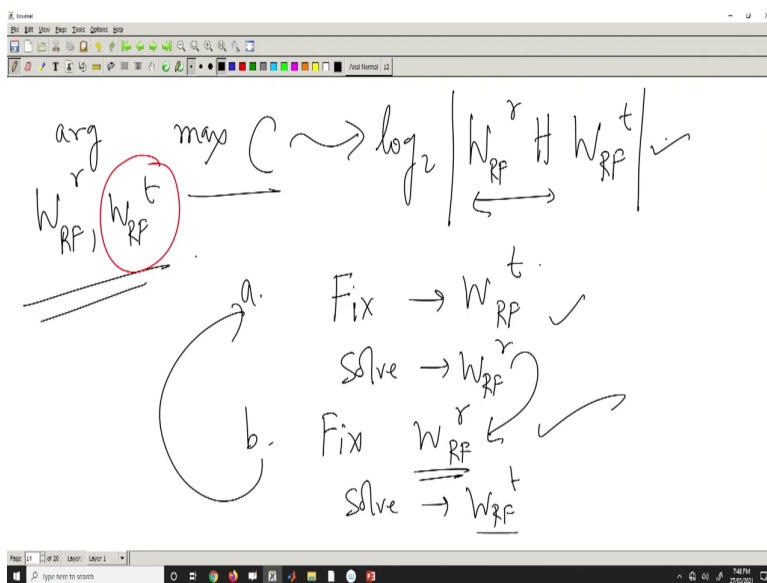 Xournal
File Edit View Page Tools Options Help
Arial Normal 12
arg max C ~> log₂ | W_RF^r H W_RF^t | ✓
W_RF^r, W_RF^t
a. Fix → W_RF^t ✓
Solve → W_RF^r
b. Fix W_RF^r ✓
Solve → W_RF^t
Page 14 of 20 Layer: Layer 1
Type here to search
7:48 PM
27/05/2021